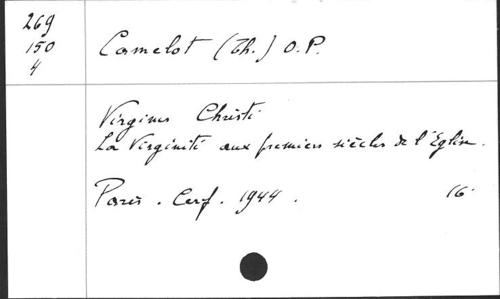 269
150
4
Camelot (Th.) O.P.
Virgines Christi
La Virginité aux premiers siècles de l'Eglise.
Paris. Cerf. 1944.
16